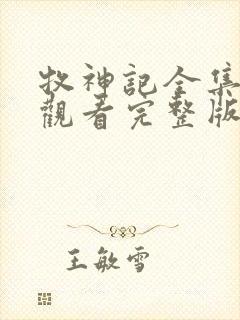 牧神記全集
觀看完整版
王敏雪